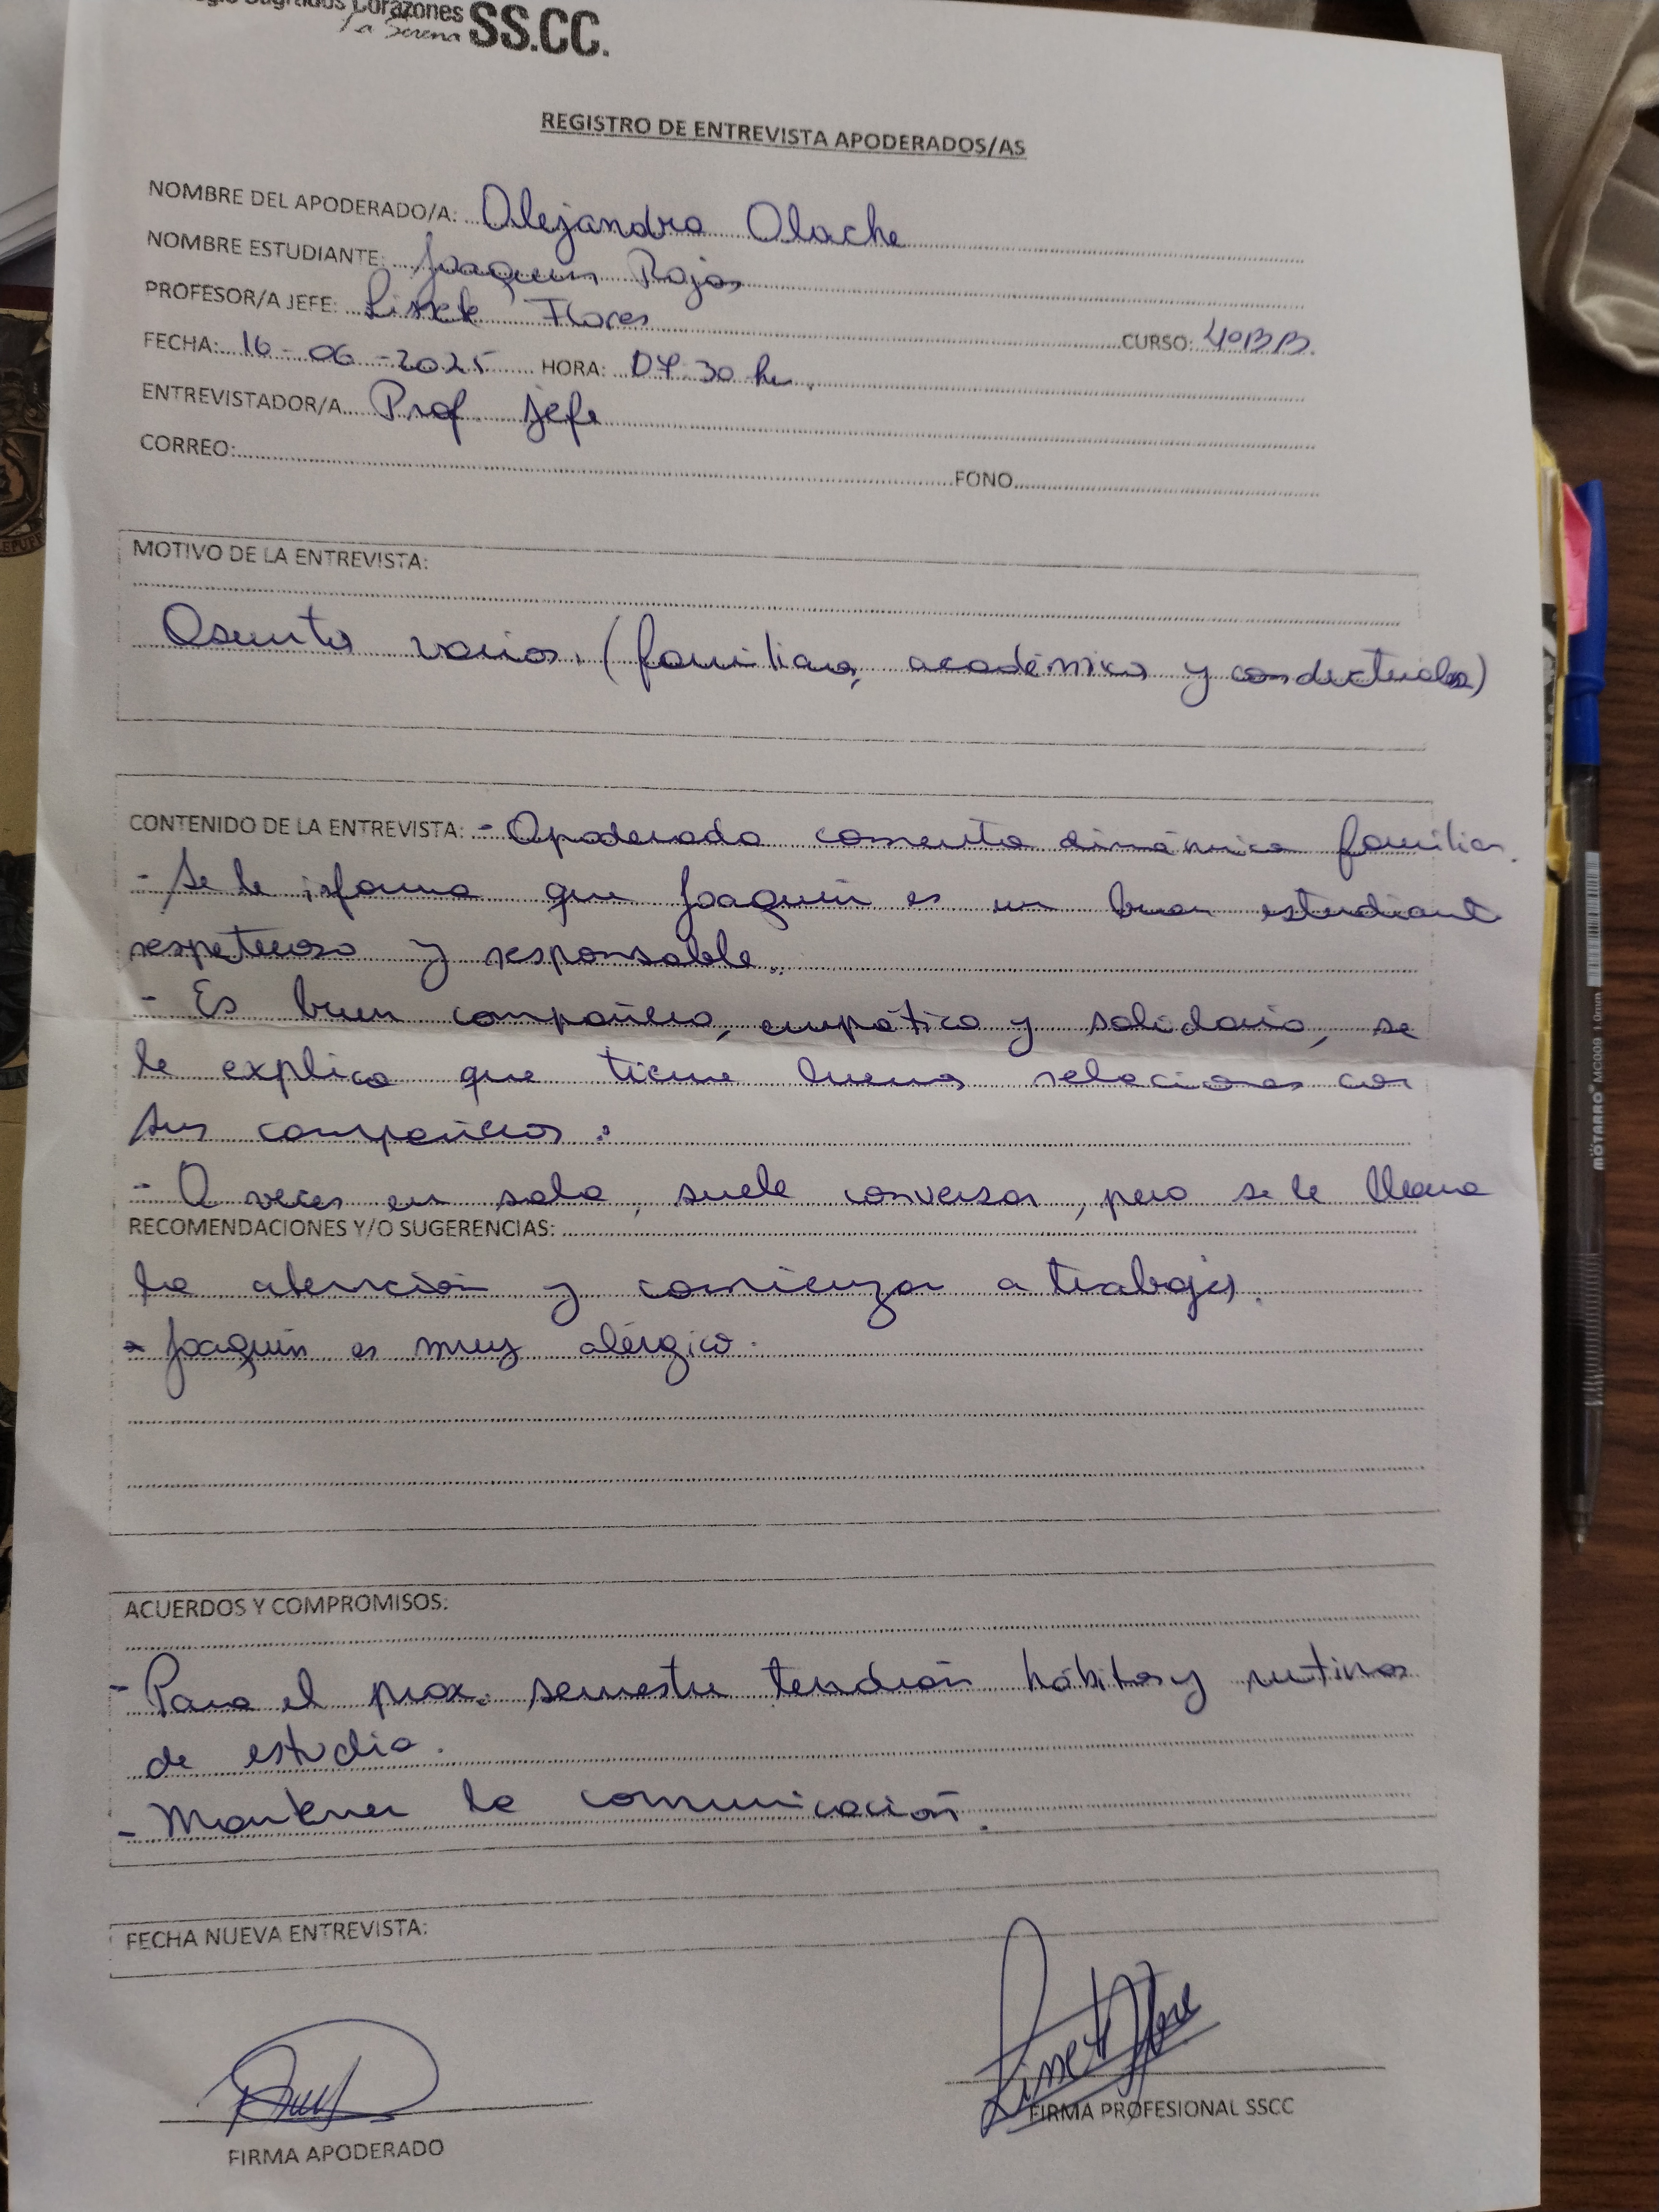 Sagrados Corazones
La Serena SS.CC.
REGISTRO DE ENTREVISTA APODERADOS/AS
NOMBRE DEL APODERADO/A: Alejandra Olache
NOMBRE ESTUDIANTE: Joaquín Rojas
PROFESOR/A JEFE: Lissete Flores CURSO: 4ºB B.
FECHA: 16-06-2025 HORA: 07.30 hr.
ENTREVISTADOR/A Prof. jefe
CORREO: FONO
MOTIVO DE LA ENTREVISTA:
Asuntos varios. (familiares, académicos y conductuales)
CONTENIDO DE LA ENTREVISTA: - Apoderada comenta dinámica familiar.
- Se le informa que Joaquín es un buen estudiante
respetuoso y responsable.
- Es buen compañero, empático y solidario, se
le explica que tiene buenas relaciones con
sus compañeros.
- A veces en sala, suele conversar, pero se le llama
RECOMENDACIONES Y/O SUGERENCIAS:
la atención y comienza a trabajar.
- Joaquín es muy alérgico.
ACUERDOS Y COMPROMISOS:
- Para el prox. semestre tendrán hábitos y rutinas
de estudio.
- Mantener la comunicación.
FECHA NUEVA ENTREVISTA:
Lissete Flores
FIRMA APODERADO
FIRMA PROFESIONAL SSCC
MOTARRO MC009 1.0mm